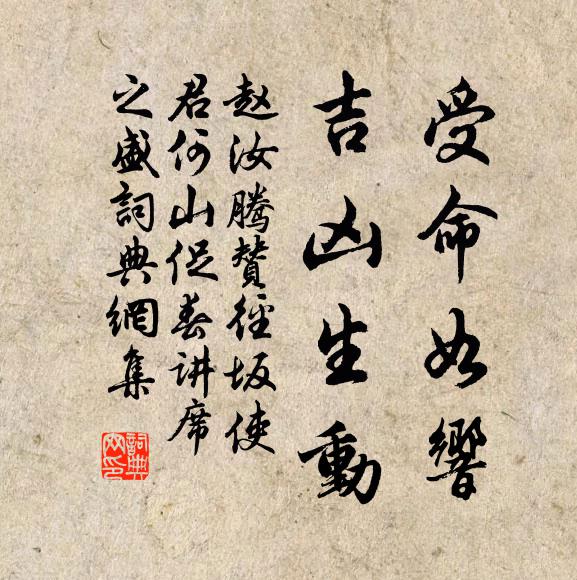 受命如響
吉凶生動
赵汝腾賛徑坂使
君何山促春讲席
之盛詞典網集
詞典网印